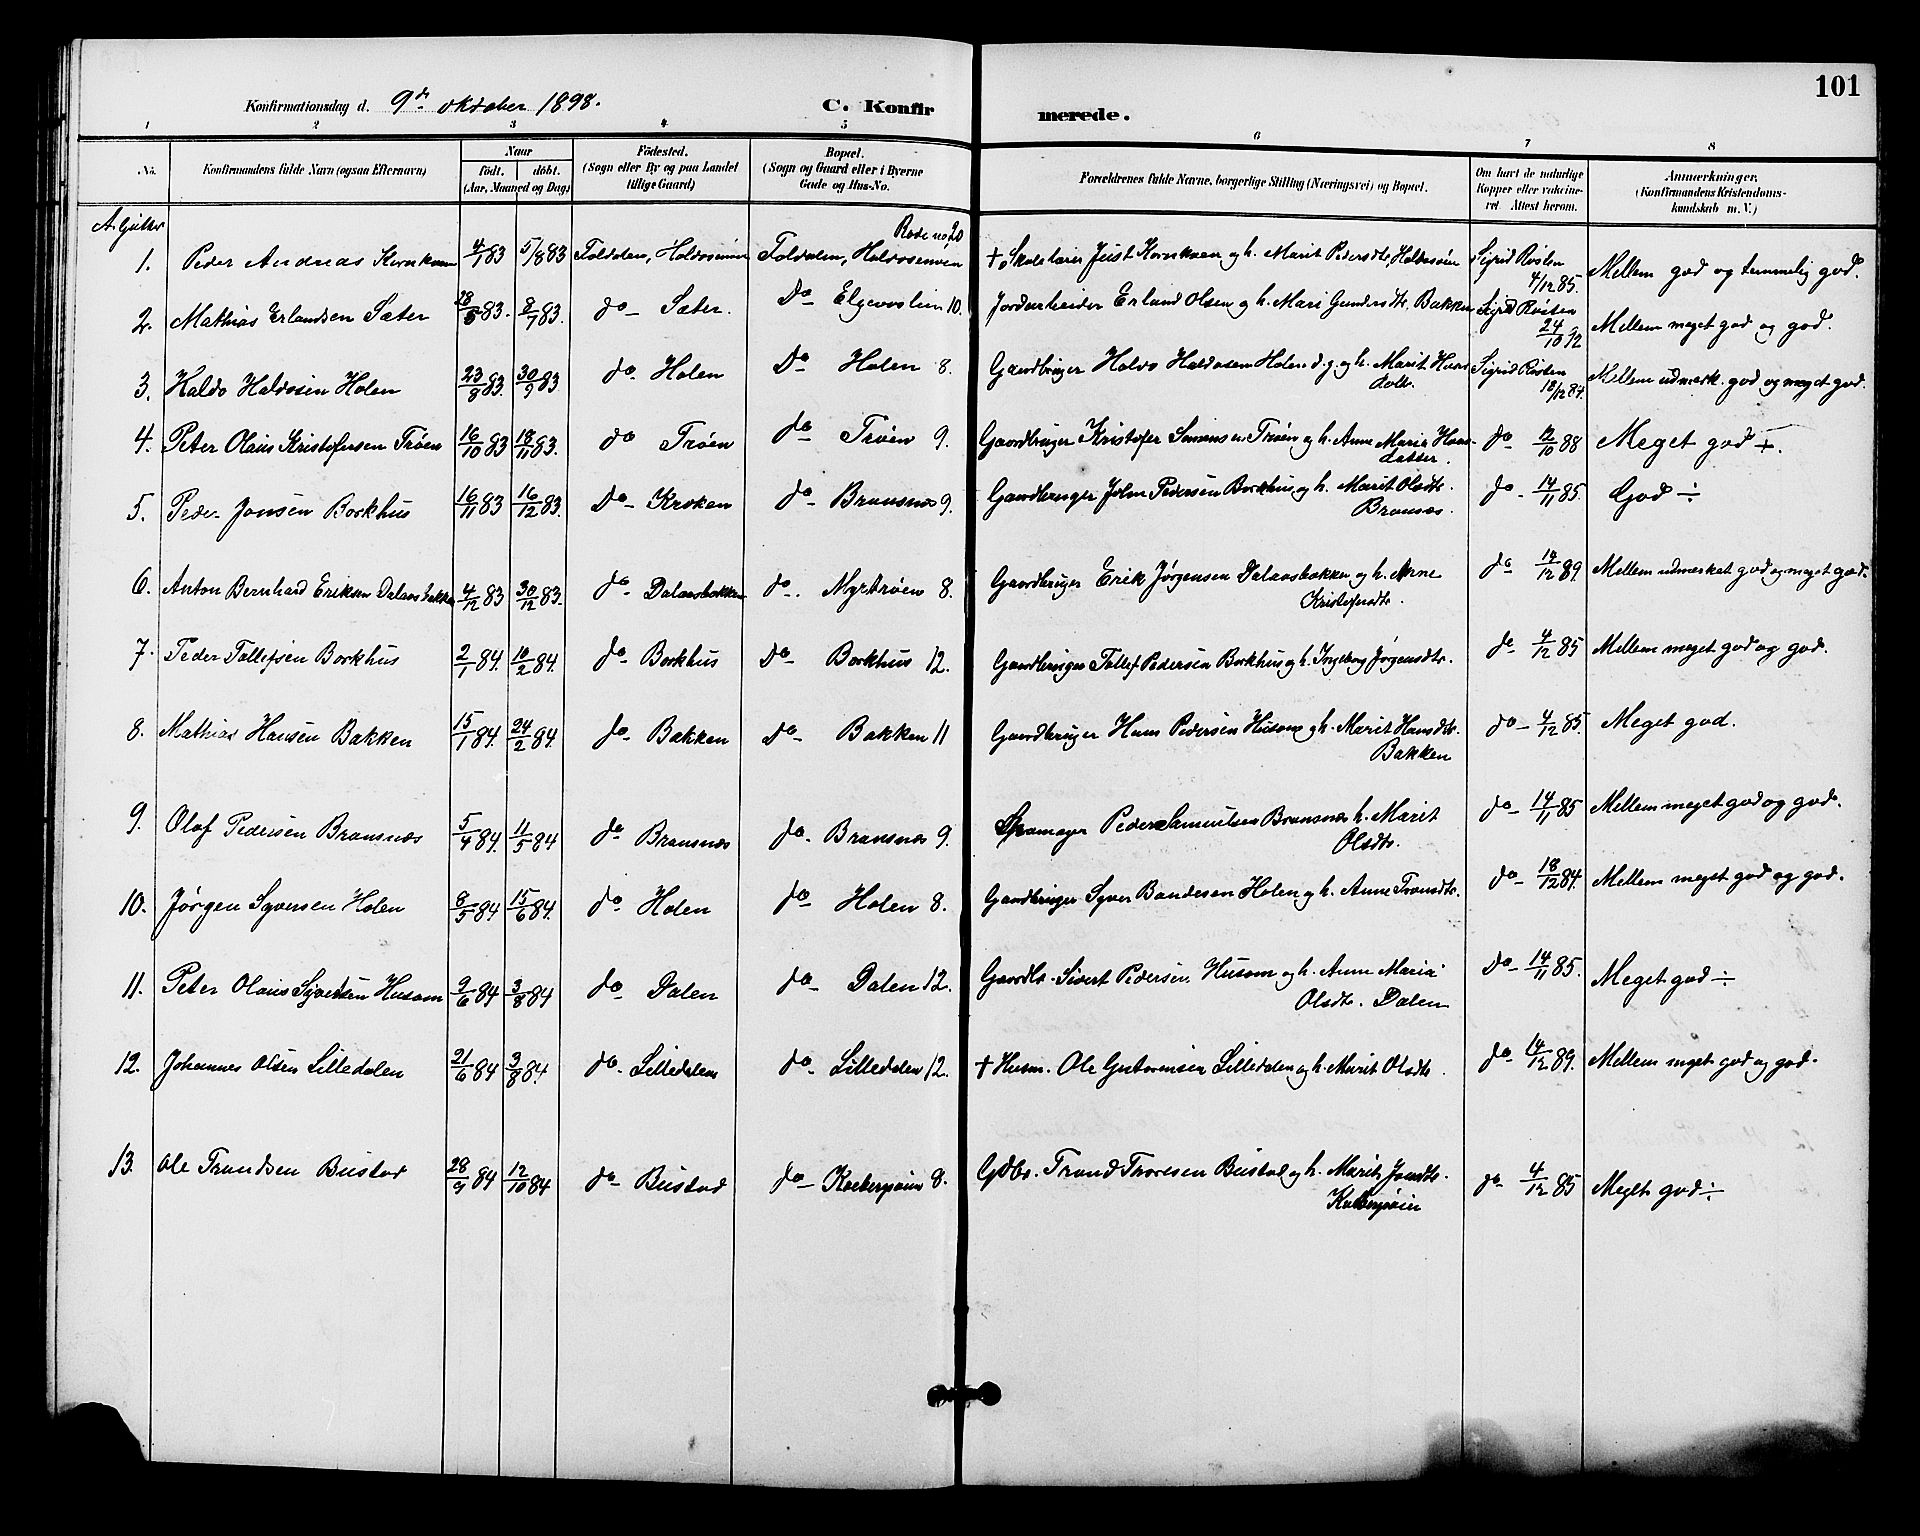 101
Konfirmationsdag d. 9de oktober 1898. C. Konfir merede.
1 2 3 4 5 6 7 8
No. Konfirmandens fulde Navn (ogsaa Efternavn) Naar födt. döbt. (Aar, Maaned og Dag) Födested. (Sogn eller By og paa Landet tillige Gaard) Bopæl. (Sogn og Gaard eller i Byerne Gade og Hus-No. Forældrenes fulde Navne, borgerlige Stilling (Næringsvei) og Bopæl. Om havt de naturlige Kopper eller vakcineret. Attest herom. Anmærkninger. (Konfirmandens Kristendomskundskab m. V.)
A. Gutter Rode no 20
1. Peder Andreas Kornkveen 4/1 83 5/8 83 Foldalen, Haldosmoen Foldalen, Haldosmoen + Skolelærer Just Kornkveen og h. Marit Pedersdtr. Haldosmoen Sigrid Røsten 4/12 85. Mellem god og temmelig god.
2. Mathias Erlandsen Sæter 28/5 83. 8/7 83. do - Sæter. Do - Elgevaslien 10. Jordarbeider Erland Olsen og h. Mari Gundersdtr. Bakken Sigrid Røsten 24/10 92 Mellem meget god og god.
3. Haldo Haldosen Holen 23/8 83. 30/9 83 do - Holen Do - Holen 8. Gaardbruger Haldo Haldosen Holen d.y. og h. Marit Hansdatr. Sigrid Røsten 18/12 84. Mellem udmærk. god og meget god.
4. Peter Olaus Kristofersen Trøen 16/10 83 18/11 83. do Trøen do - Trøen 9. Gaardbruger Kristofer Simonsen Trøen og h. Anne Maria Hansdatter. do - 12/10 88 Meget god +.
5. Peder Jonsen Borkhus 16/11 83 16/12 83. Do - Kroken do - Bransnæs 9. Gaardbruger John Pedersen Borkhus og h. Marit Olsdtr. Bransnæs. do - 14/11 85. God ÷
6. Anton Bernhard Eriksen Dalansbakken 4/12 83 30/12 83. do - Dalansbakken do. Myrtrøen 8. Gaardbruger Erik Jørgensen Dalansbakken og h. Anne Kristofersdtr. do - 14/12 89 Mellem udmærket god og meget god.
7. Peder Tollefsen Borkhus 2/1 84. 10/2 84. do - Borkhus Do - Borkhus 12. Gaardbruger Tollef Pedersen Borkhus og h. Ingeborg Jørgensdtr. do - 4/12 85 Mellem meget god og god.
8. Mathias Hansen Bakken 15/1 84. 24/2 84. do - Bakken Do - Bakken 11 Gaardbruger Hans Pedersen Husom og h. Marit Hansdtr. Bakken do - 4/12 85. Meget god.
9. Olaf Pedersen Bransnæs 5/4 84. 11/5 84 do Bransnæs do - Bransnæs 9. Skomager Peder Samuelsen Bransnæs h. Marit Olsdtr. do - 14/11 85 Mellem meget god og god.
10. Jørgen Syversen Holen 8/5 84 15/6 84. do - Holen do - Holen 8. Gaardbruger Syver Bandesen Holen og h. Anne Trondsdtr. do - 18/12 84. Mellem meget god og god.
11. Peter Olaus Syvertsen Husom 2/6 84 3/8 84 do - Dalen do - Dalen 12. Gaardbr. Sivert Pedersen Husom og h. Anne Maria Olsdtr. Dalen do - 14/11 85. Meget god ÷
12. Johannes Olsen Lilledalen 21/6 84 3/8 84. do - Lilledalen do - Lilledalen 12. + Husm. Ole Guttormsen Lilledalen og h. Marit Olsdtr. do - 14/12 89. Mellem meget god og god.
13. Ole Trondsen Bustad 28/9 84 12/10 84 do - Bustad do - 8. Gdbr. Trond Thoresen Bustad og h. Marit Jonsdtr. do - 4/12 85 Meget god ÷